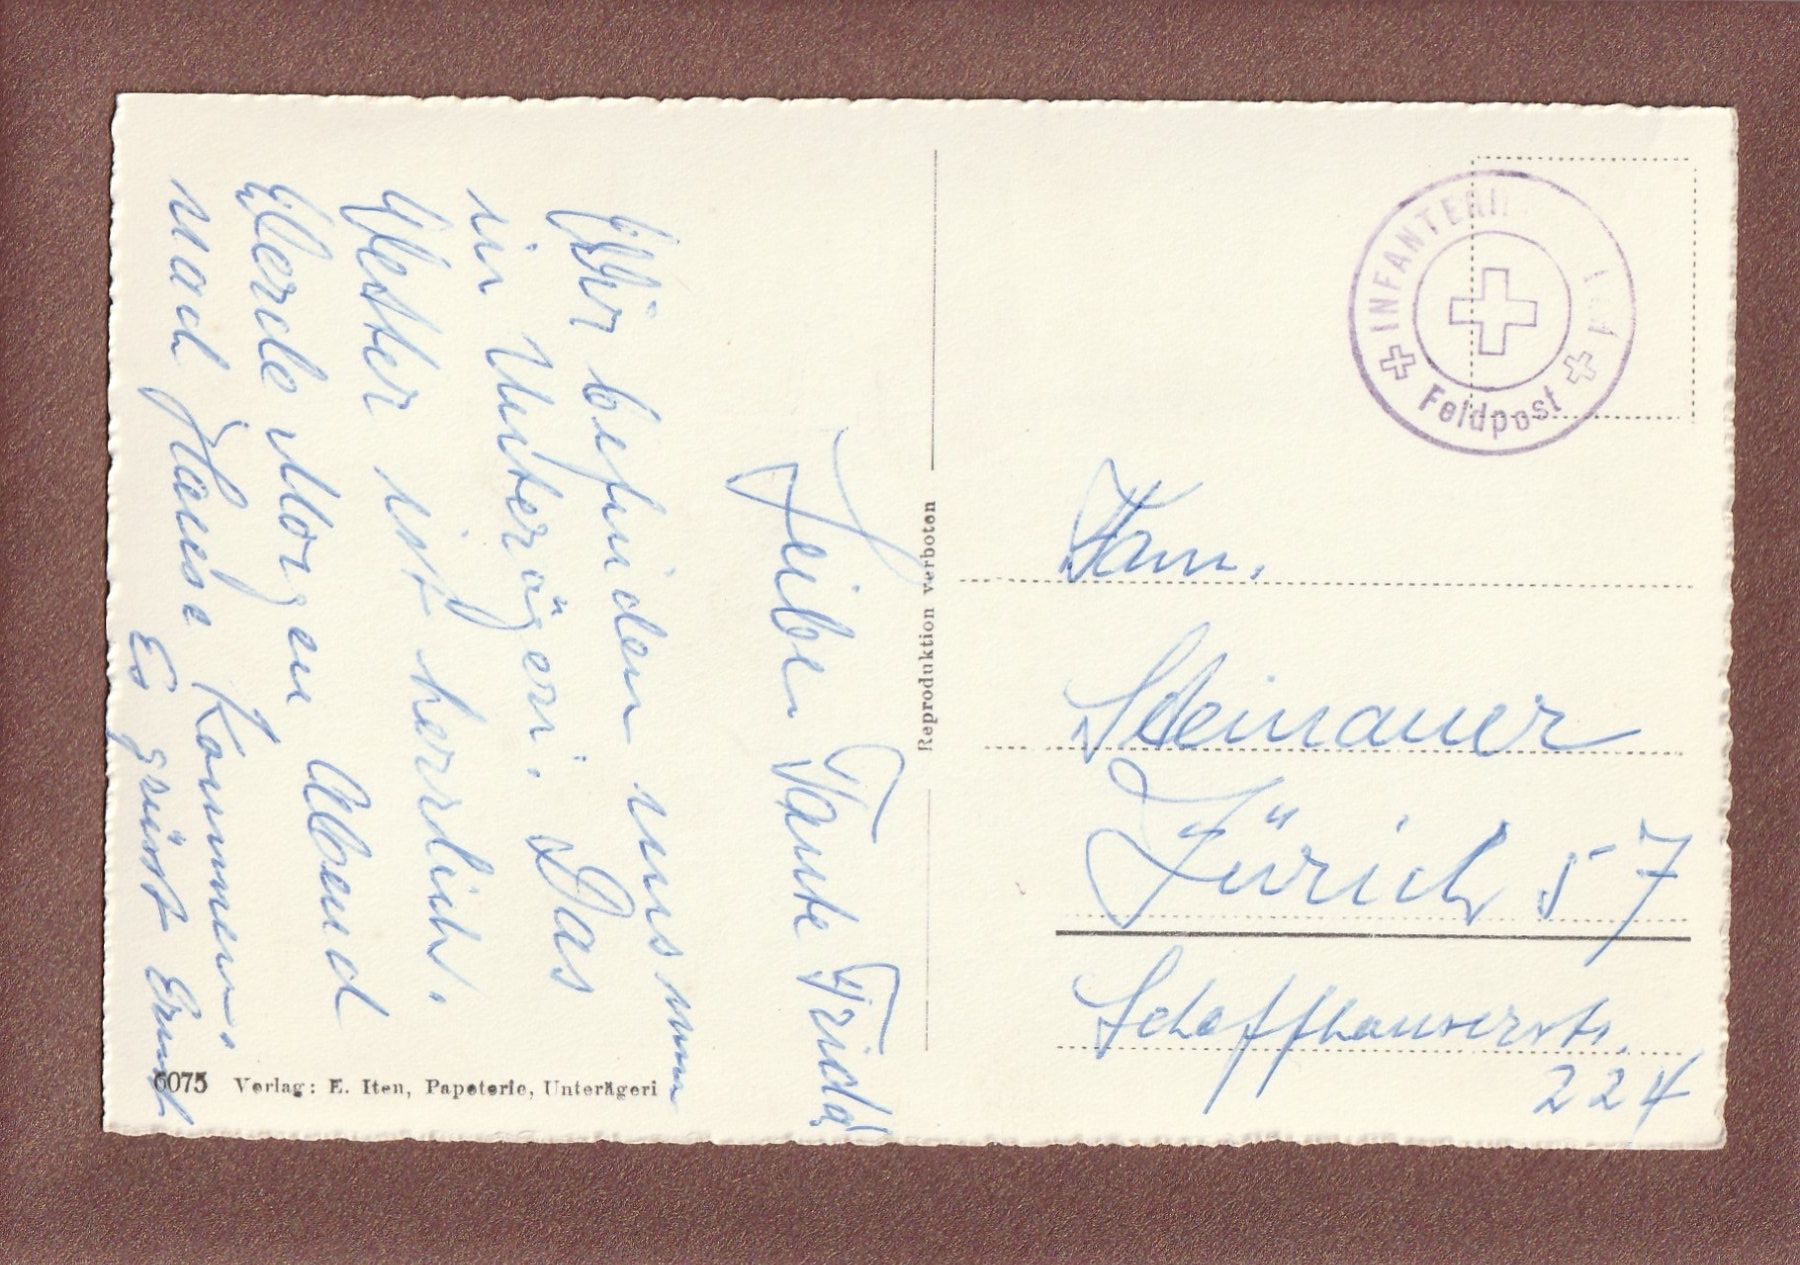 Leibe Tante Frida
Wir befinden uns nun
in Unterägeri. Das
Wetter ist herrlich.
Werde Morgen Abend
nach Hause kommen.
Es grüsst Ernst
Reproduktion verboten
INFANTERIE
Feldpost
Fam.
Steinauer
Zürich 57
Schaffhauserstr.
224
6075 Verlag: E. Iten, Papeterie, Unterägeri